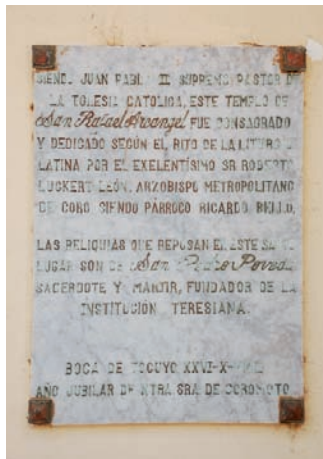 SIENDO JUAN PABLO II SUPREMO PASTOR DE
LA IGLESIA CATOLICA, ESTE TEMPLO DE
San Rafael Arcangel FUE CONSAGRADO
Y DEDICADO SEGÚN EL RITO DE LA LITURGIA
LATINA POR EL EXELENTÍSIMO SR ROBERTO
LUCKERT LEÓN, ARZOBISPO METROPOLITANO
DE CORO SIENDO PÁRROCO RICARDO BELLO.
LAS RELIQUIAS QUE REPOSAN EN ESTE
LUGAR SON DE San Pedro Poveda
SACERDOTE Y MARTIR, FUNDADOR DE LA
INSTITUCIÓN TERESIANA.
BOCA DE TOCUYO
AÑO JUBILAR DE NTRA SRA DE COROMOTO